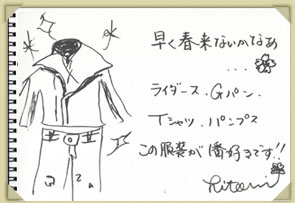 早く春来ないかなあ
...
ライダース、Gパン、
Tシャツ、パンプス
この服装が1番好きです!!
Hitomi